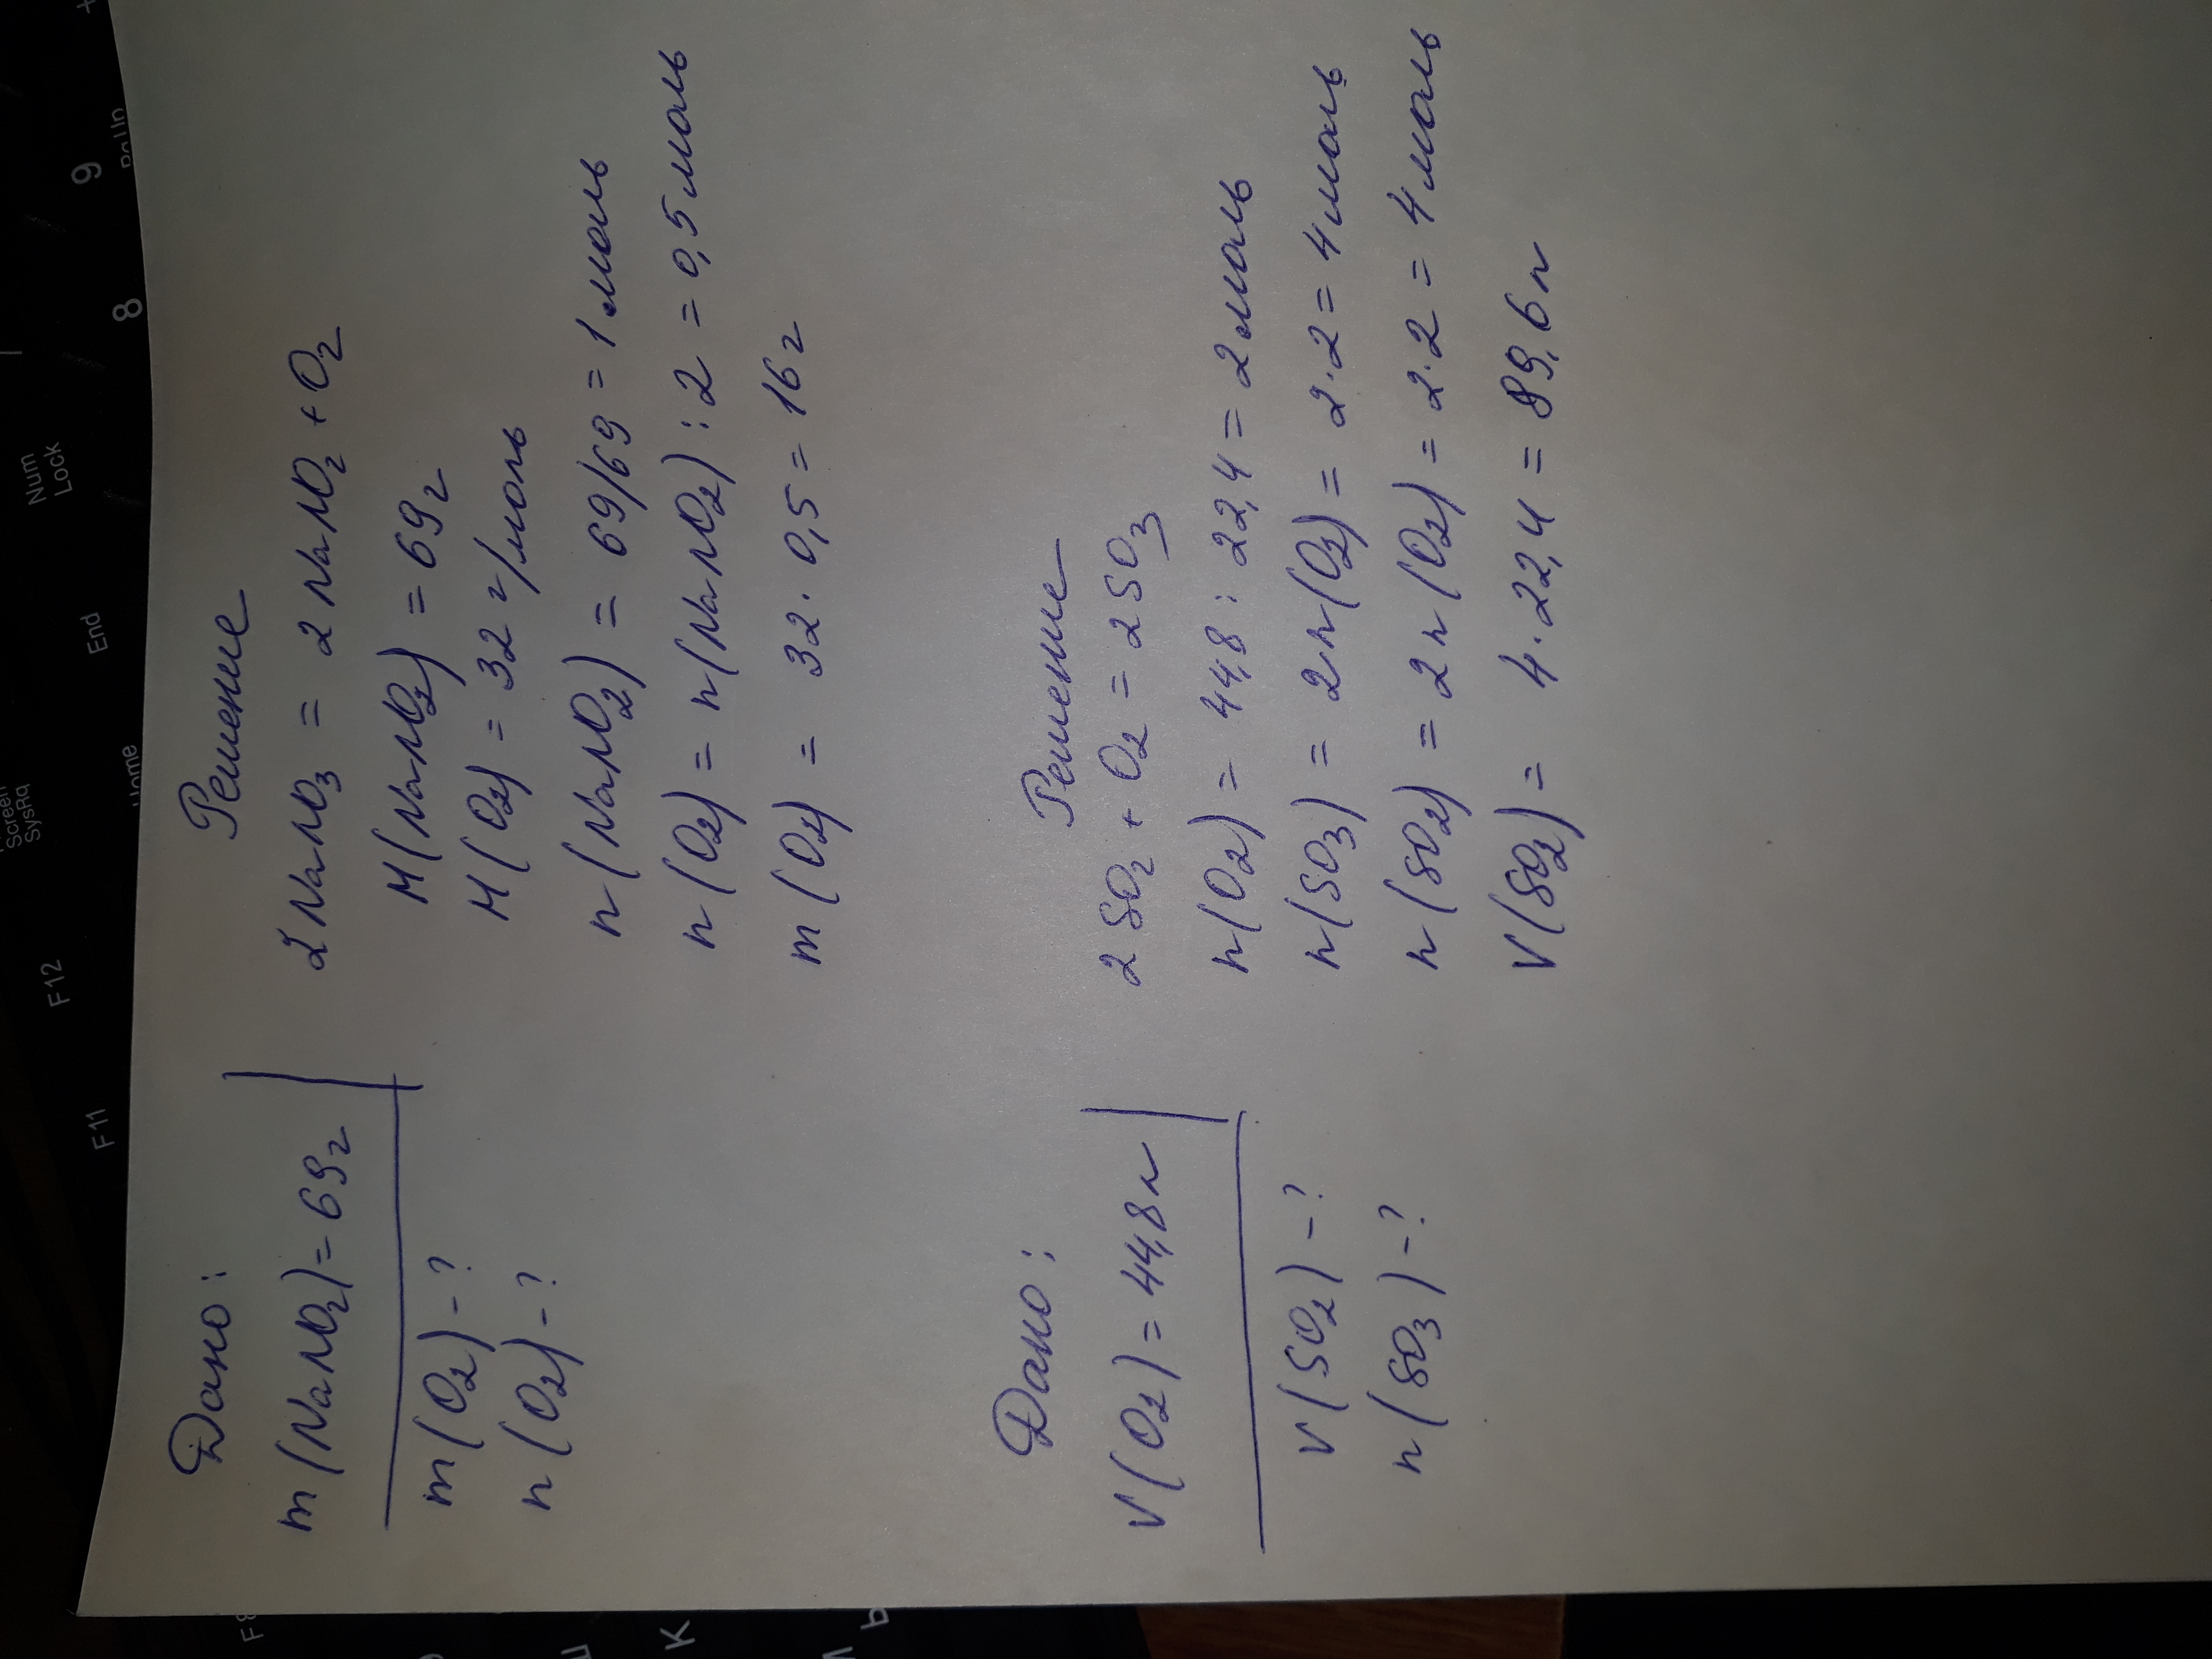 Дано:
m(NaNO2)=69г
m(O2)-?
n(O2)-?
Решение
2NaNO3 = 2NaNO2+O2
M(NaNO2)=69г
M(O2)=32г/моль
n(NaNO2)=69/69=1моль
n(O2)=n(NaNO2):2=0,5моль
m(O2)=32·0,5=16г
Дано:
V(O2)=44,8л
V(SO2)-?
n(SO3)-?
Решение
2SO2+O2=2SO3
n(O2)=44,8:22,4=2моль
n(SO3)=2n(O2)=2·2=4моль
n(SO2)=2n(O2)=2·2=4моль
V(SO2)=4·22,4=89,6л
F11
F12
Screen
SysRq
Home
End
Num
Lock
8
9
К
Ь